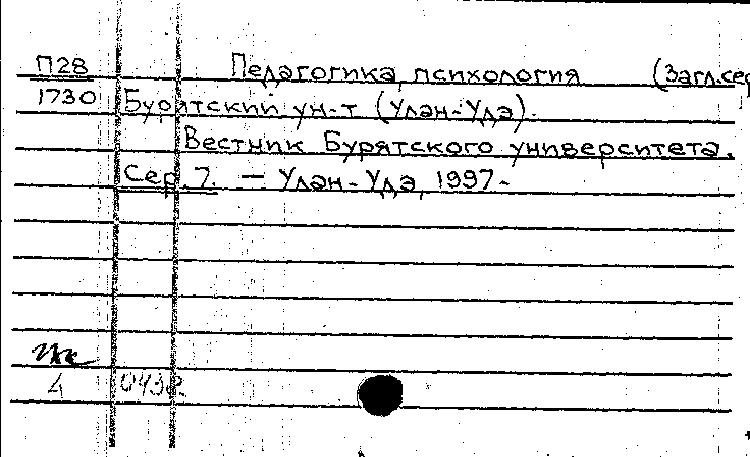 П28 Педагогика, психология (Загл.сер
1730 Бурятский ун-т (Улан-Удэ).
Вестник Бурятского университета.
Сер. 7. — Улан-Удэ, 1997-